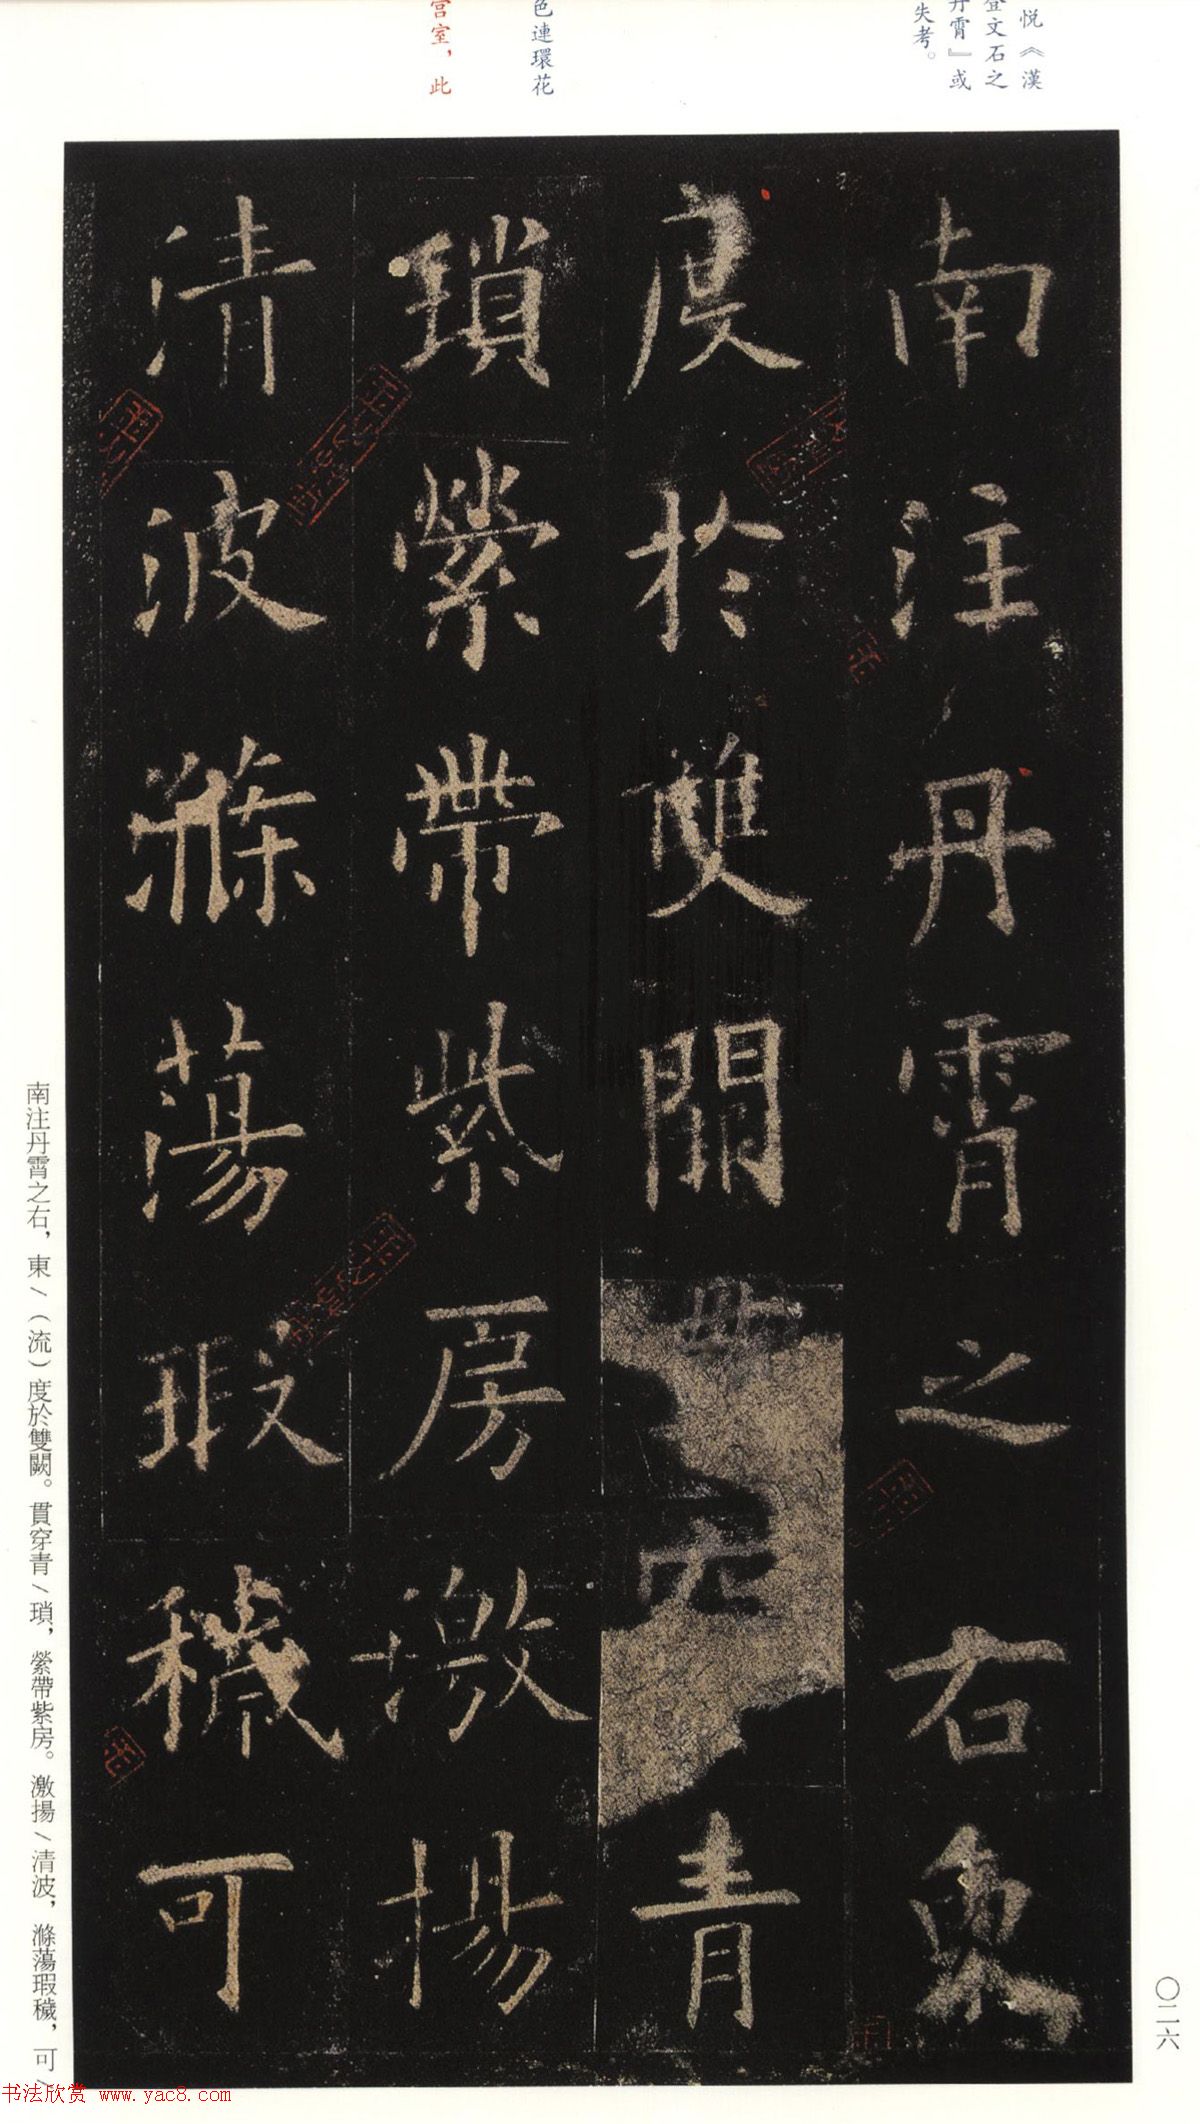 悦《漢
登文石之
丹霄』或
失考。
色連環花
宫室，此
南注丹霄之右東
度於雙闕貫穿青
瑣縈帶紫房激揚
清波滌蕩瑕穢可
南注丹霄之右，東/（流）度於雙闕。貫穿青/瑣，縈帶紫房。激揚/清波，滌蕩瑕穢，可/
〇二六
书法欣赏 www.yac8.com